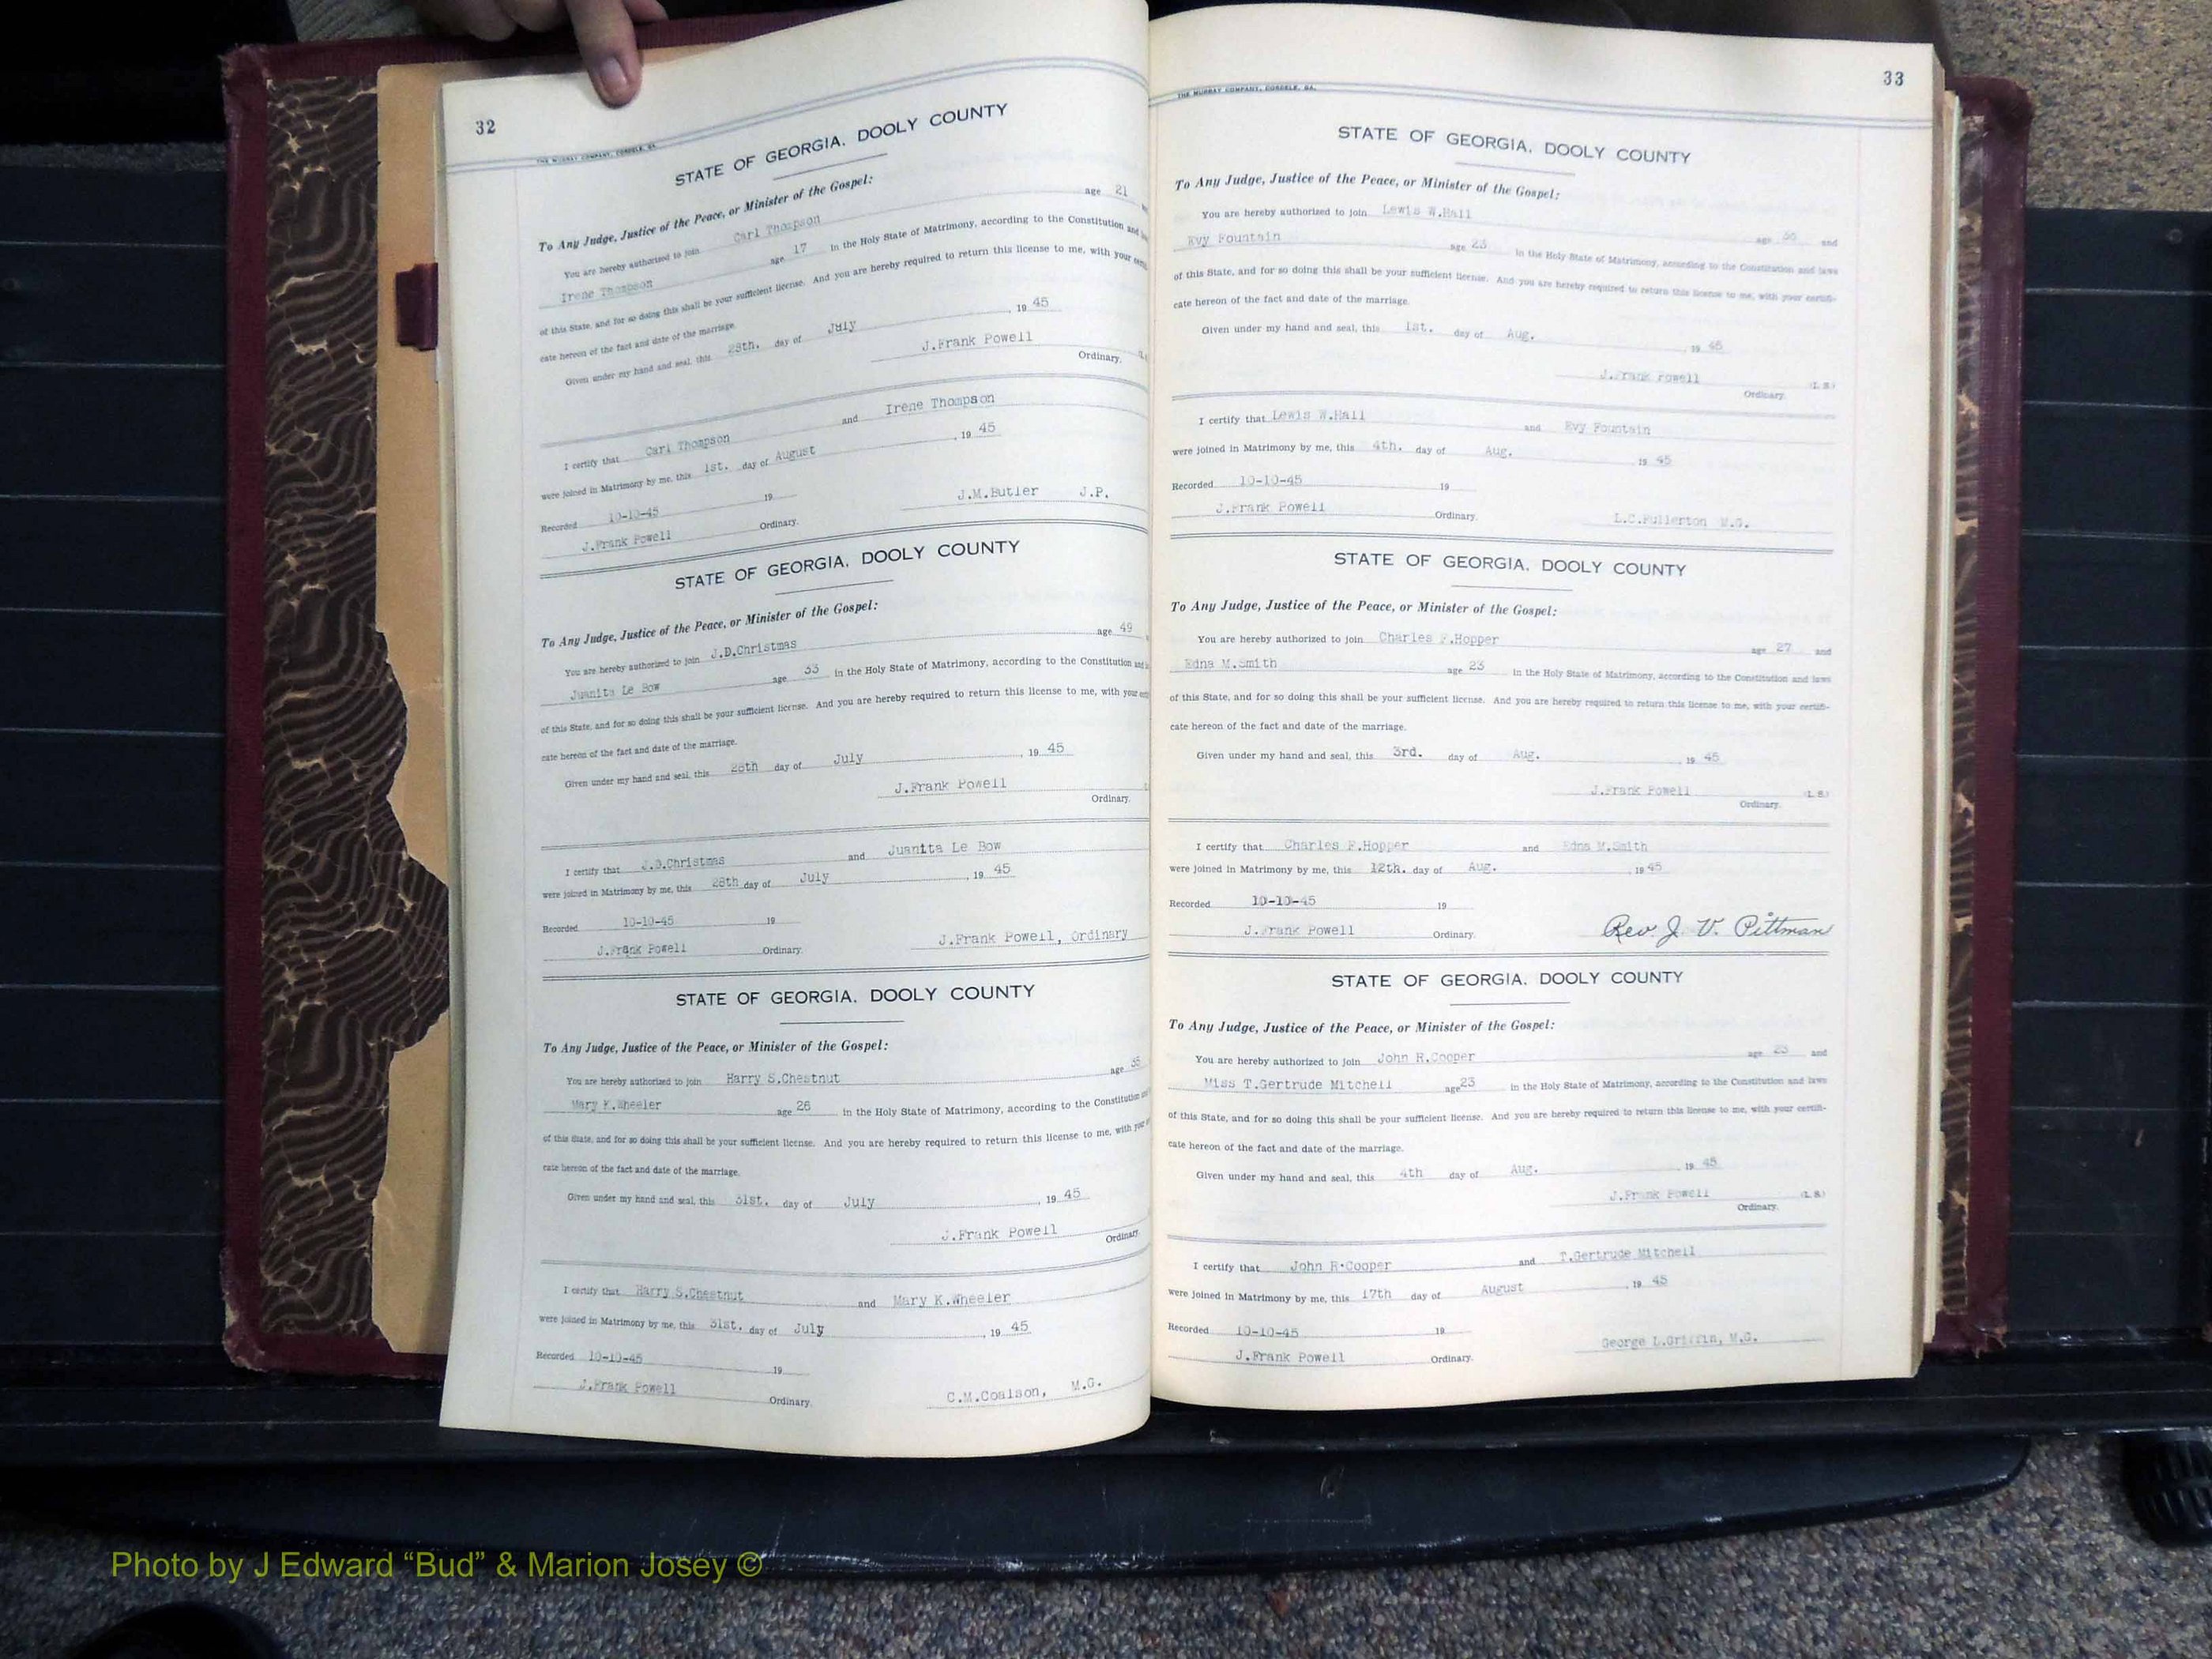 32
THE MURRAY COMPANY, CORDELE, GA.
STATE OF GEORGIA, DOOLY COUNTY
To Any Judge, Justice of the Peace, or Minister of the Gospel:
You are hereby authorized to join Carl Thompson age 21
Irene Thompson age 17 in the Holy State of Matrimony, according to the Constitution and
of this State, and for so doing this shall be your sufficient license. And you are hereby required to return this license to me, with your
cate hereon of the fact and date of the marriage.
Given under my hand and seal, this 28th. day of July, 19 45
J.Frank Powell
Ordinary.
I certify that Carl Thompson and Irene Thompson
were joined in Matrimony by me, this 1st. day of August, 19 45
Recorded 10-10-45 19
J.M.Butler J.P.
J.Frank Powell Ordinary.
STATE OF GEORGIA, DOOLY COUNTY
To Any Judge, Justice of the Peace, or Minister of the Gospel:
You are hereby authorized to join J.D.Christmas age 49
Juanita Le Bow age 33 in the Holy State of Matrimony, according to the Constitution and
of this State, and for so doing this shall be your sufficient license. And you are hereby required to return this license to me, with your
cate hereon of the fact and date of the marriage.
Given under my hand and seal, this 28th day of July, 19 45
J.Frank Powell
Ordinary.
I certify that J.D.Christmas and Juanita Le Bow
were joined in Matrimony by me, this 28th day of July, 19 45
Recorded 10-10-45 19
J.Frank Powell Ordinary. J.Frank Powell, Ordinary
STATE OF GEORGIA, DOOLY COUNTY
To Any Judge, Justice of the Peace, or Minister of the Gospel:
You are hereby authorized to join Harry S.Chestnut age
Mary K.Wheeler age 26 in the Holy State of Matrimony, according to the Constitution
of this State, and for so doing this shall be your sufficient license. And you are hereby required to return this license to me, with your
cate hereon of the fact and date of the marriage.
Given under my hand and seal, this 31st. day of July, 19 45
J.Frank Powell
Ordinary.
I certify that Harry S.Chestnut and Mary K.Wheeler
were joined in Matrimony by me, this 31st. day of July, 19 45
Recorded 10-10-45 19
J.Frank Powell Ordinary. C.M.Coalson, M.G.
33
THE MURRAY COMPANY, CORDELE, GA.
STATE OF GEORGIA, DOOLY COUNTY
To Any Judge, Justice of the Peace, or Minister of the Gospel:
You are hereby authorized to join Lewis W.Hall age and
Evy Fountain age 23 in the Holy State of Matrimony, according to the Constitution and laws
of this State, and for so doing this shall be your sufficient license. And you are hereby required to return this license to me, with your certifi-
cate hereon of the fact and date of the marriage.
Given under my hand and seal, this 1st. day of Aug., 19 45
J.Frank Powell (L. S.)
Ordinary.
I certify that Lewis W.Hall and Evy Fountain
were joined in Matrimony by me, this 4th. day of Aug., 19 45
Recorded 10-10-45 19
J.Frank Powell Ordinary. L.C.Fullerton M.G.
STATE OF GEORGIA, DOOLY COUNTY
To Any Judge, Justice of the Peace, or Minister of the Gospel:
You are hereby authorized to join Charles F.Hopper age 27 and
Edna M.Smith age 23 in the Holy State of Matrimony, according to the Constitution and laws
of this State, and for so doing this shall be your sufficient license. And you are hereby required to return this license to me, with your certifi-
cate hereon of the fact and date of the marriage.
Given under my hand and seal, this 3rd. day of Aug., 19 45
J.Frank Powell (L. S.)
Ordinary.
I certify that Charles F.Hopper and Edna M.Smith
were joined in Matrimony by me, this 12th. day of Aug., 19 45
Recorded 10-10-45 19
J.Frank Powell Ordinary. Rev. J. V. Pittman
STATE OF GEORGIA, DOOLY COUNTY
To Any Judge, Justice of the Peace, or Minister of the Gospel:
You are hereby authorized to join John R.Cooper age and
Miss T.Gertrude Mitchell age 23 in the Holy State of Matrimony, according to the Constitution and laws
of this State, and for so doing this shall be your sufficient license. And you are hereby required to return this license to me, with your certifi-
cate hereon of the fact and date of the marriage.
Given under my hand and seal, this 4th day of Aug., 19 45
J.Frank Powell (L. S.)
Ordinary.
I certify that John R.Cooper and T.Gertrude Mitchell
were joined in Matrimony by me, this 17th day of August, 19 45
Recorded 10-10-45 19
J.Frank Powell Ordinary. George L.Griffin, M.G.
Photo by J Edward “Bud” & Marion Josey ©